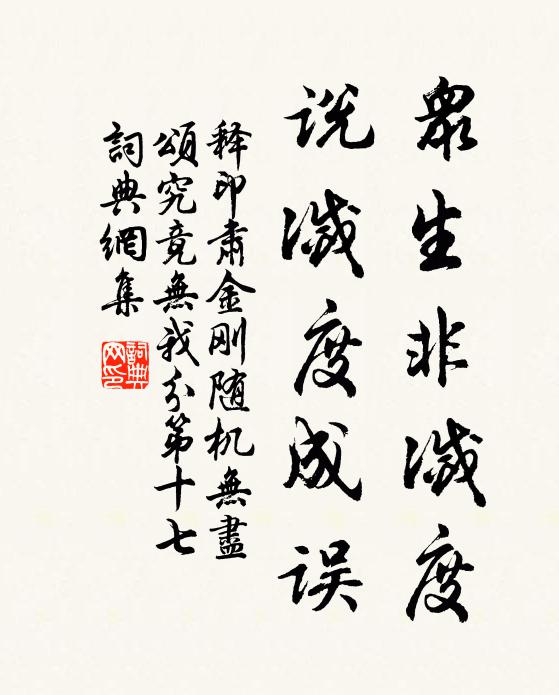 眾生非滅度
说滅度成误
释印肃金刚随机無盡
頌究竟無我分第十七
詞典網集
詞典網印